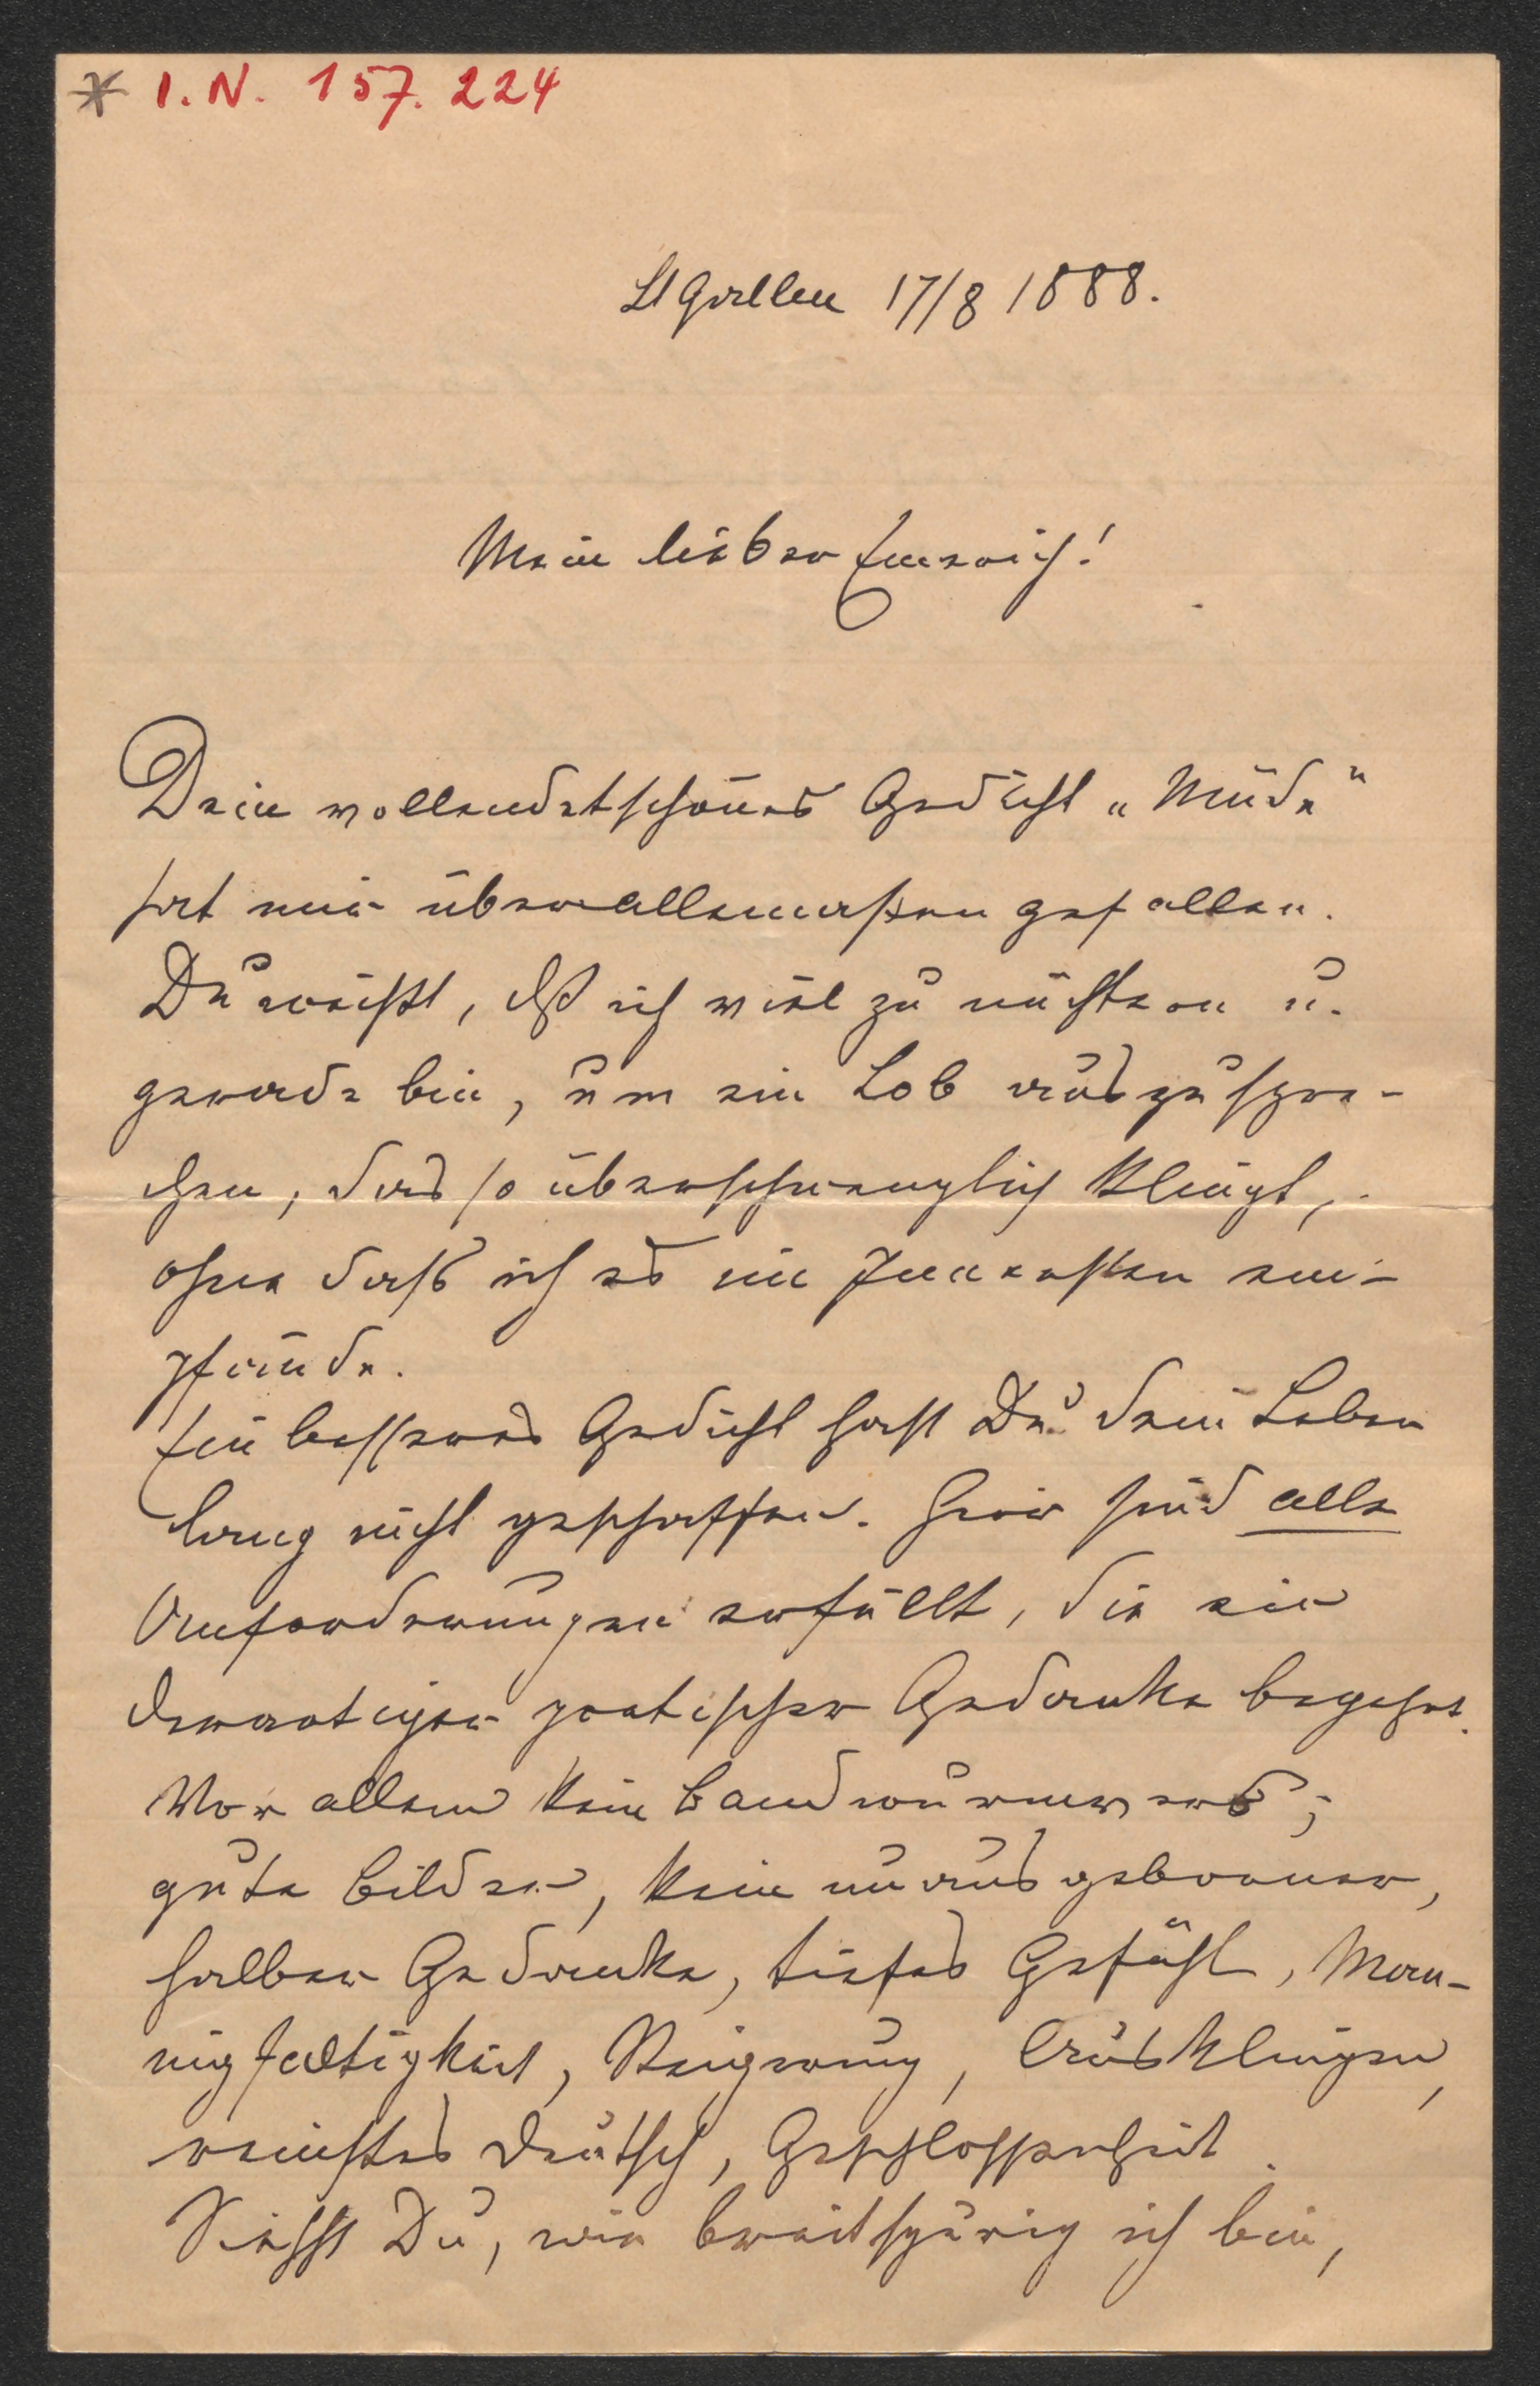 * I. N. 157.224
St Gallen 17/8 1888.
Mein lieber Emerich!
Dein vollendetschönes Gedicht „Müde“
hat mir überallemaßen gefallen.
Du weißt, dß ich viel zu nüchtern u.
gerade bin, um ein Lob auszuspre-
chen, das so überschwenglich klingt,
ohne daß ich es im Innersten em-
pfände.
Ein besseres Gedicht hast Du dein Leben
lang nicht geschaffen. Hier sind alle
Anforderungen erfüllt, die ein
derartiger poetischer Gedanke begehrt.
Vor allem kein Bandwurmvers;
gute Bilder, kein unausgebrorener,
halber Gedanke, tiefes Gefühl, Man-
nigfaltigkeit, Steigerung, Ausklingen,
reinstes Deutsch, Geschlossenheit.
Siehst Du, wie breitspurig ich bin,